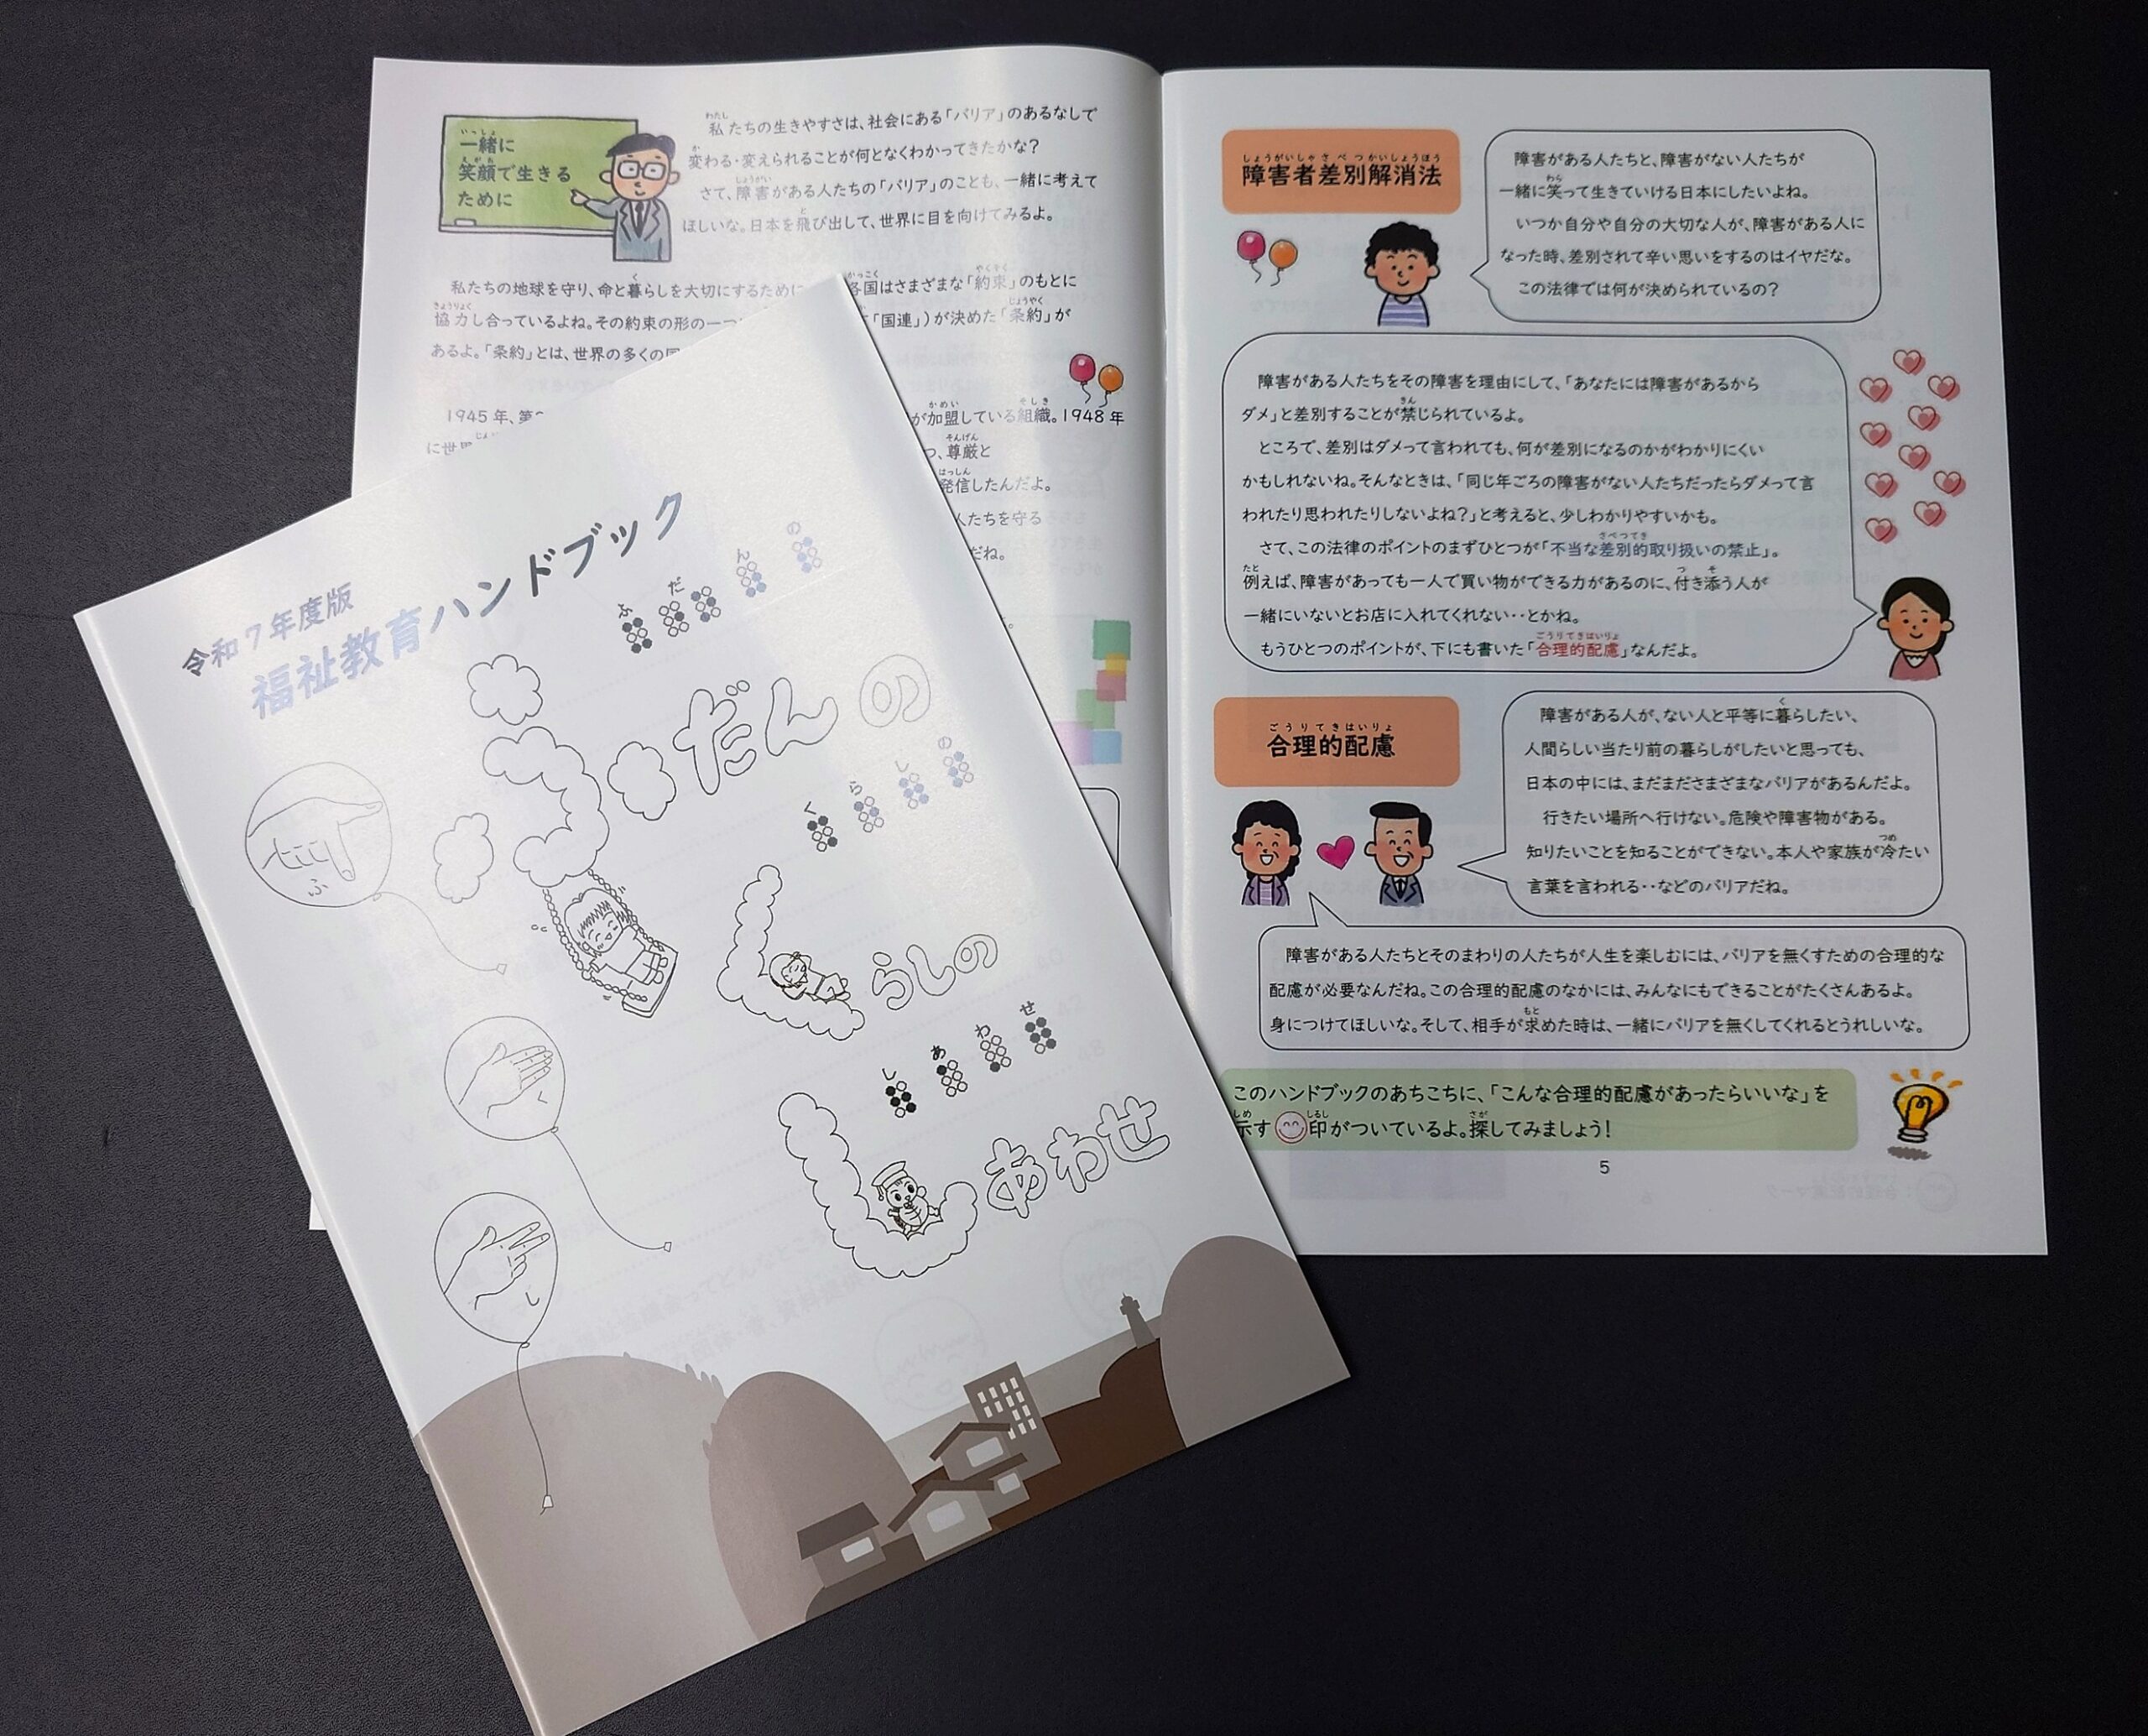 一緒に
笑顔で生きる
ために
私たちの生きやすさは、社会にある「バリア」のあるなしで
変わる・変えられることが何となくわかってきたかな？
さて、障害がある人たちの「バリア」のことも、一緒に考えて
ほしいな。日本を飛び出して、世界に目を向けてみるよ。
私たちの地球を守り、命と暮らしを大切にするために
各国はさまざまな「約束」のもとに
協力し合っているよね。その約束の形の一つ
「国連」）が決めた「条約」が
あるよ。「条約」とは、世界の多くの
1945年、第
が加盟している組織。1948年
に世
つ、尊厳と
発信したんだよ。
人たちを守る
だね。
令和7年度版
福祉教育ハンドブック
ふ だ ん の
ふだんの
く ら し の
くらしの
し あ わ せ
しあわせ
ふ
く
し
障害者差別解消法
障害がある人たちと、障害がない人たちが
一緒に笑って生きていける日本にしたいよね。
いつか自分や自分の大切な人が、障害がある人に
なった時、差別されて辛い思いをするのはイヤだな。
この法律では何が決められているの？
障害がある人たちをその障害を理由にして、「あなたには障害があるから
ダメ」と差別することが禁じられているよ。
ところで、差別はダメって言われても、何が差別になるのかがわかりにくい
かもしれないね。そんなときは、「同じ年ごろの障害がない人たちだったらダメって言
われたり思われたりしないよね？」と考えると、少しわかりやすいかも。
さて、この法律のポイントのまずひとつが「不当な差別的取り扱いの禁止」。
例えば、障害があっても一人で買い物ができる力があるのに、付き添う人が
一緒にいないとお店に入れてくれない‥とかね。
もうひとつのポイントが、下にも書いた「合理的配慮」なんだよ。
合理的配慮
障害がある人が、ない人と平等に暮らしたい、
人間らしい当たり前の暮らしがしたいと思っても、
日本の中には、まだまださまざまなバリアがあるんだよ。
行きたい場所へ行けない。危険や障害物がある。
知りたいことを知ることができない。本人や家族が冷たい
言葉を言われる‥などのバリアだね。
障害がある人たちとそのまわりの人たちが人生を楽しむには、バリアを無くすための合理的な
配慮が必要なんだね。この合理的配慮のなかには、みんなにもできることがたくさんあるよ。
身につけてほしいな。そして、相手が求めた時は、一緒にバリアを無くしてくれるとうれしいな。
このハンドブックのあちこちに、「こんな合理的配慮があったらいいな」を
示す 印がついているよ。探してみましょう！
5